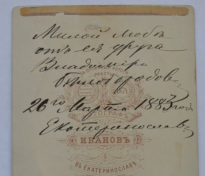 Милой Любѣ
отъ ея друга
Владимира
26го Марта 1883 года
Екатеринославъ
ИВАНОВЪ
ВЪ ЕКАТЕРИНОСЛАВѢ